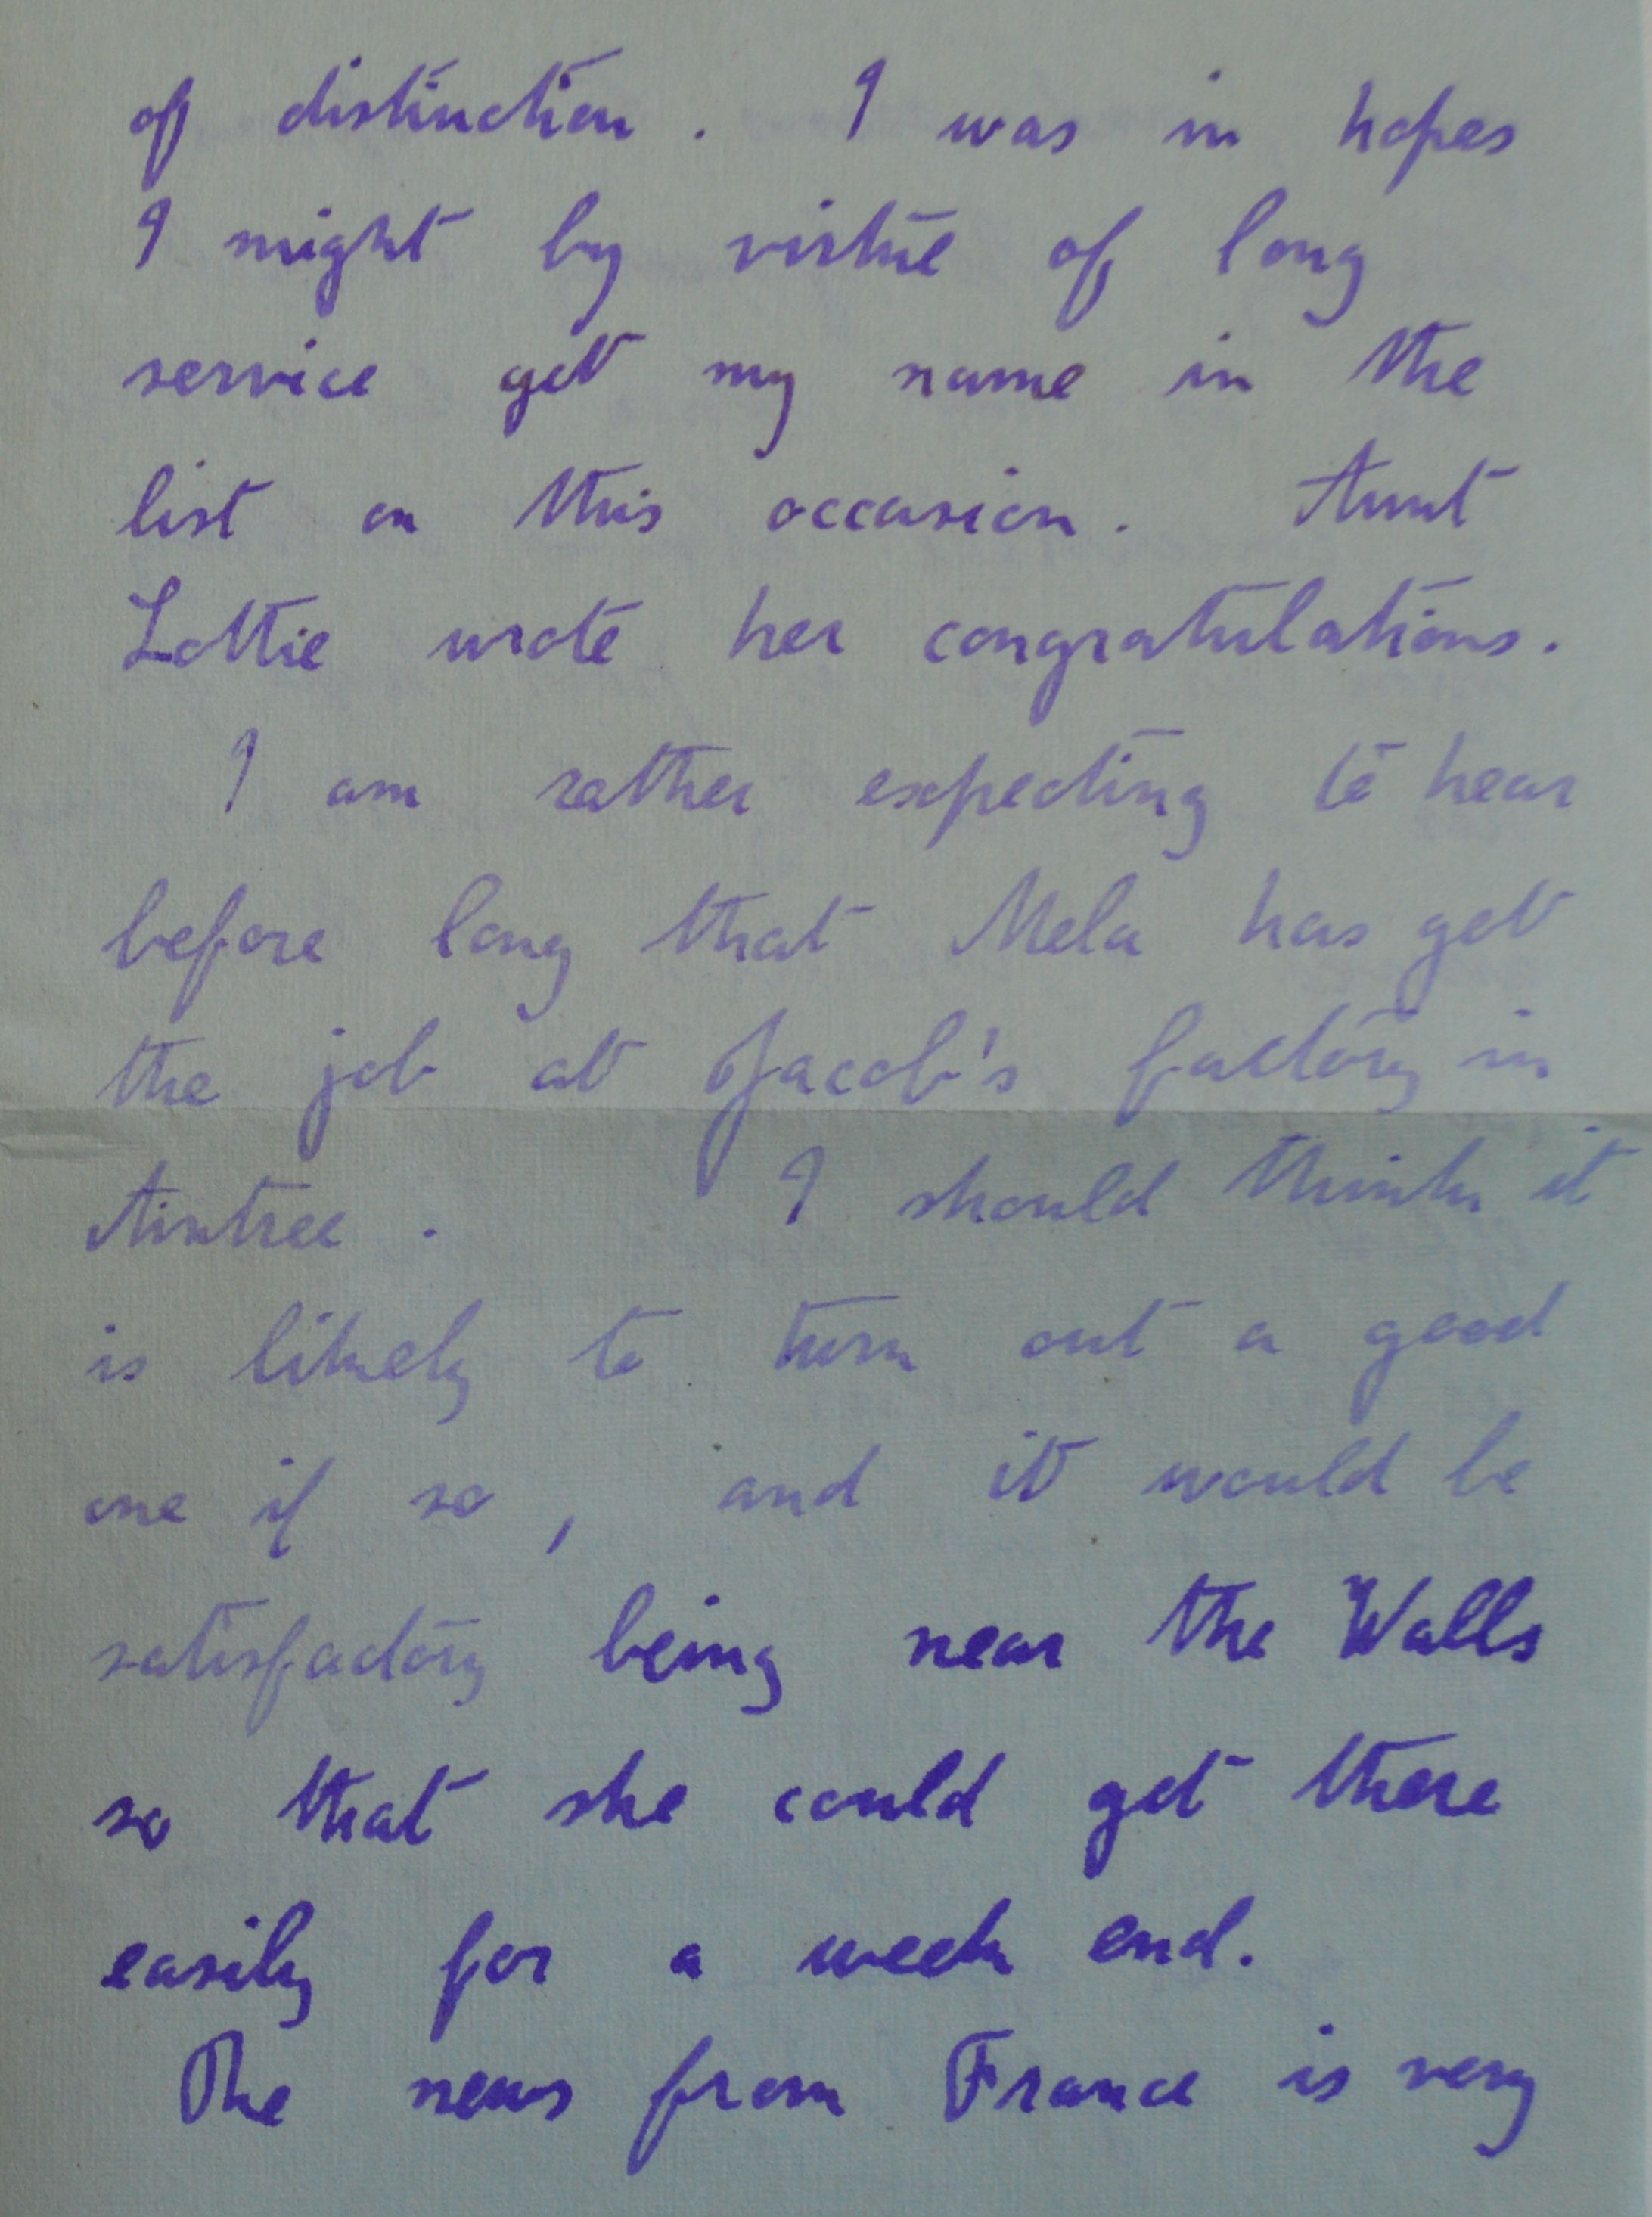 of distinction. I was in hopes
I might by virtue of long
service get my name in the
list on this occasion. Aunt
Lottie wrote her congratulations.
I am rather expecting to hear
before long that Mela has got
the job at Jacob's factory in
Aintree. I should think it
is likely to turn out a good
one if so, and it would be
satisfactory being near the Walls
so that she could get there
easily for a week end.
The news from France is very